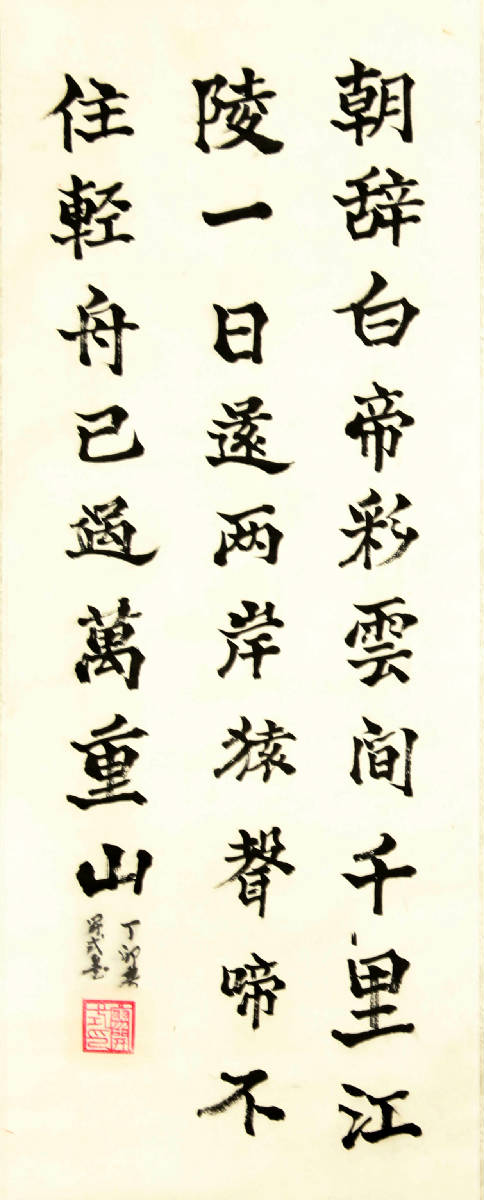 朝辞白帝彩雲间千里江
陵一日還两岸猿聲啼不
住軽舟已過萬重山
丁卯